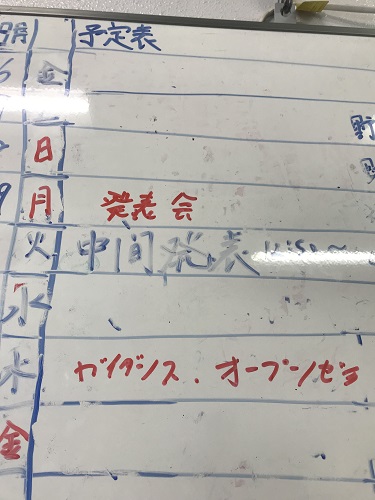 9月 予定表
金
日
月 発表会
火 中間発表
水
木 ガイダンス、オープンゼミ
金